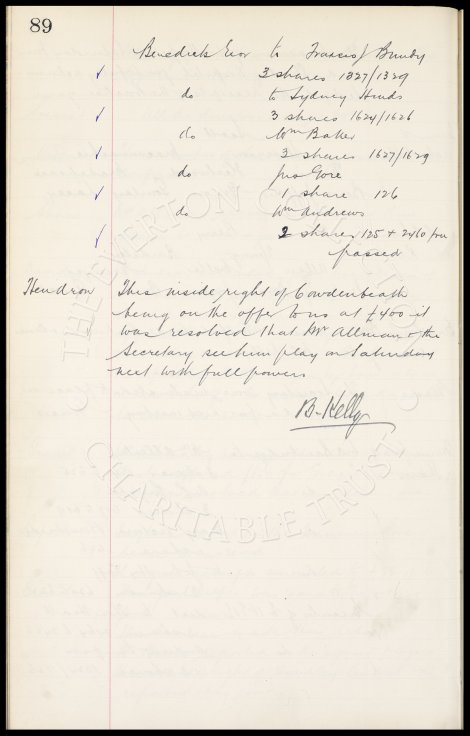 89
Benedicts Exor to Francis J Bundy
✓ 3 shares 1327/1329
do to Sydney Hinds
✓ 3 shares 1624/1626
do Wm Baker
✓ 3 shares 1627/1629
do Jno Gore
✓ 1 share 126
do Wm Andrews
✓ 2 shares 125 + 2460
passed
Hendron This inside right of Cowdenbeath
being on the offer to us at £400 it
was resolved that Mr Allman & the
Secretary see him play on Saturday
next with full powers
B. Kelly
THE EVERTON COLLECTION
CHARITABLE TRUST